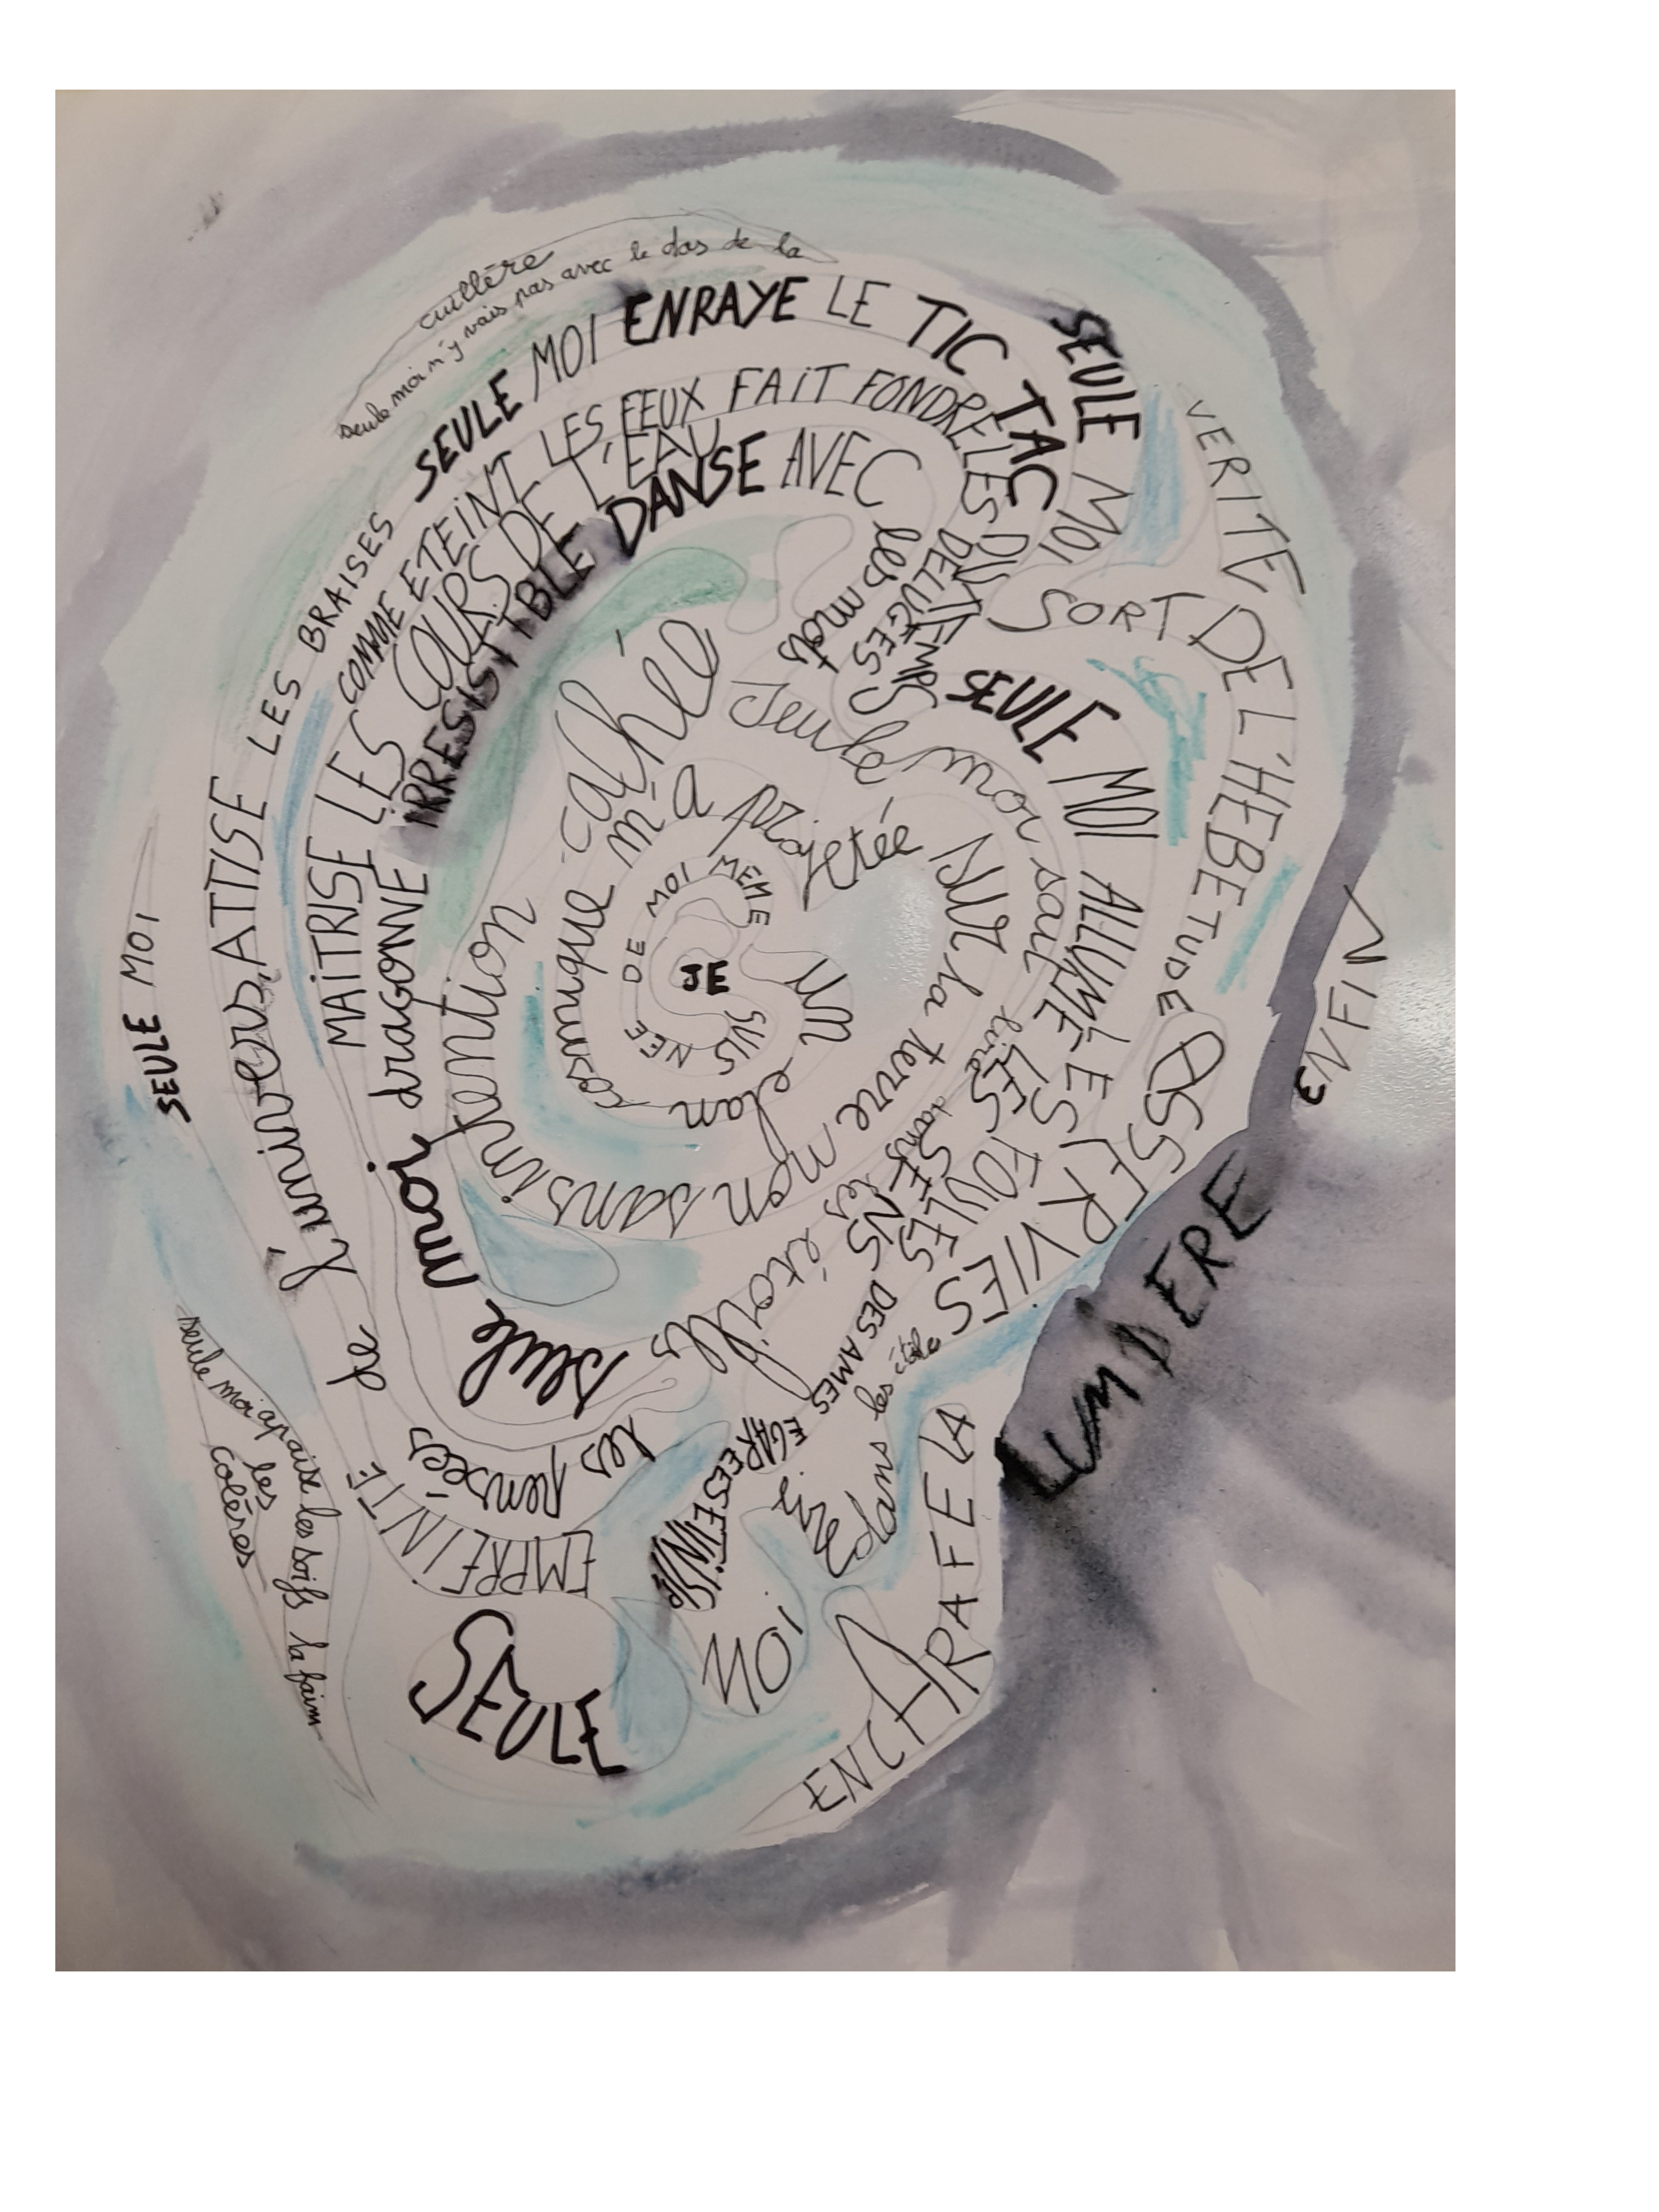 JE
SUIS NEE DE MOI MEME
UN elan cosmique m'a projetée sur la terre
mon sans intention cachée
seule moi sait lire dans les étoiles
seule moi dragonne IRRESISTIBLE DANSE AVEC les mots
SEULE MOI ALLUME LES FOULES
MAITRISE LES COURS DE L'EAU
COMME ETEINT LES FEUX FAIT FONDRE LES DELUGES
les pensées de l'univers, ATTISE LES BRAISES
SEULE MOI ENRAYE LE TIC TAC DU TEMPS
SEULE MOI SORT DE L'HEBETUDE
LES SENS DES AMES EGAREES
ASSERVIES
EMPREINTE
SEULE
MOI
dans les étoile
ENCHARAFE LA
LUMIERE
VERITE
ENFIN
SEULE MOI
seule moi n'y vais pas avec le dos de la
cuillère
seule moi apaise les soifs la faim
les
colères